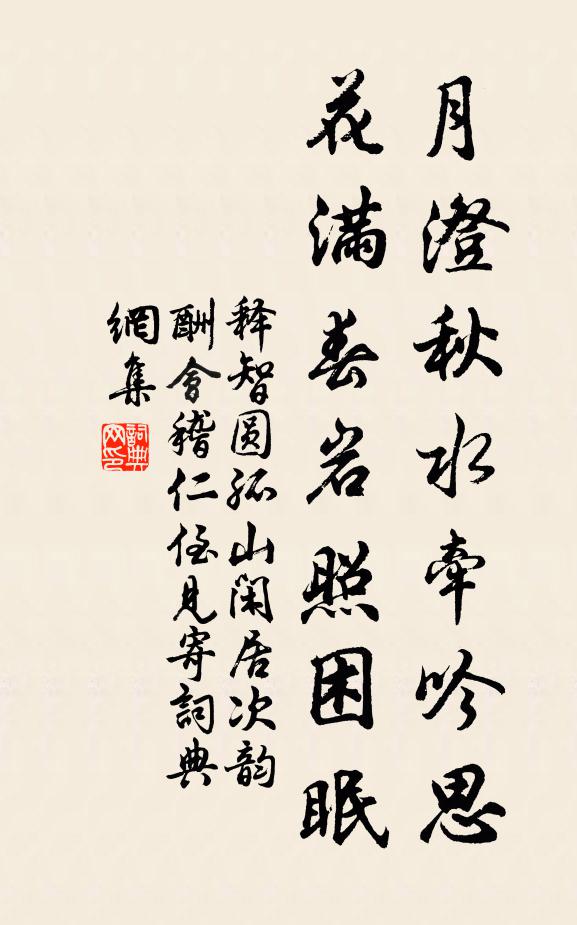 月澄秋水牵吟思
花满春岩照困眠
释智圆孤山闲居次韵
酬會稽仁侄見寄詞典
網集
詞典网印